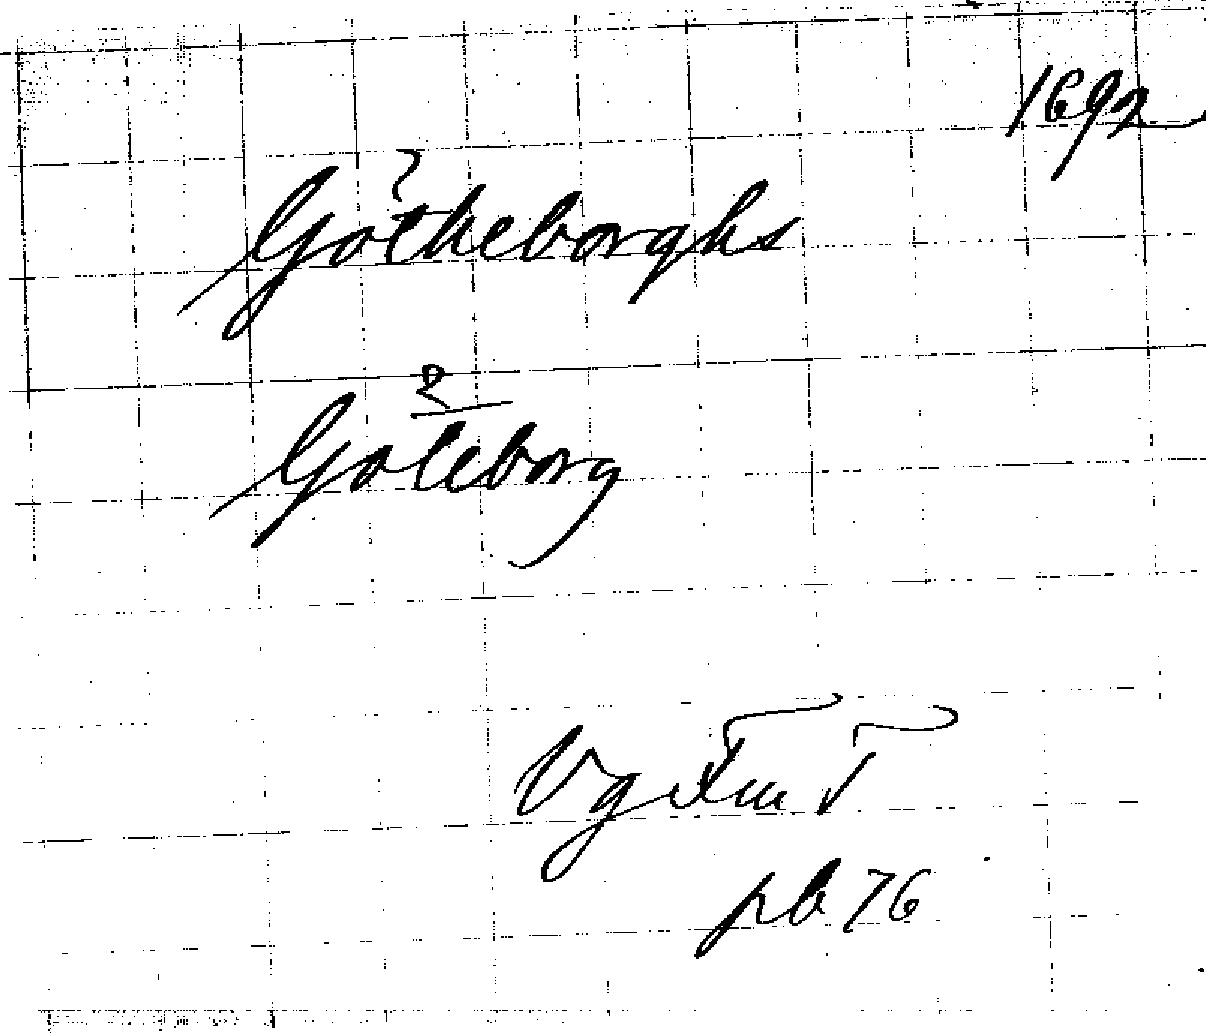 1692
Götheborghs
Göteborg
pb 76